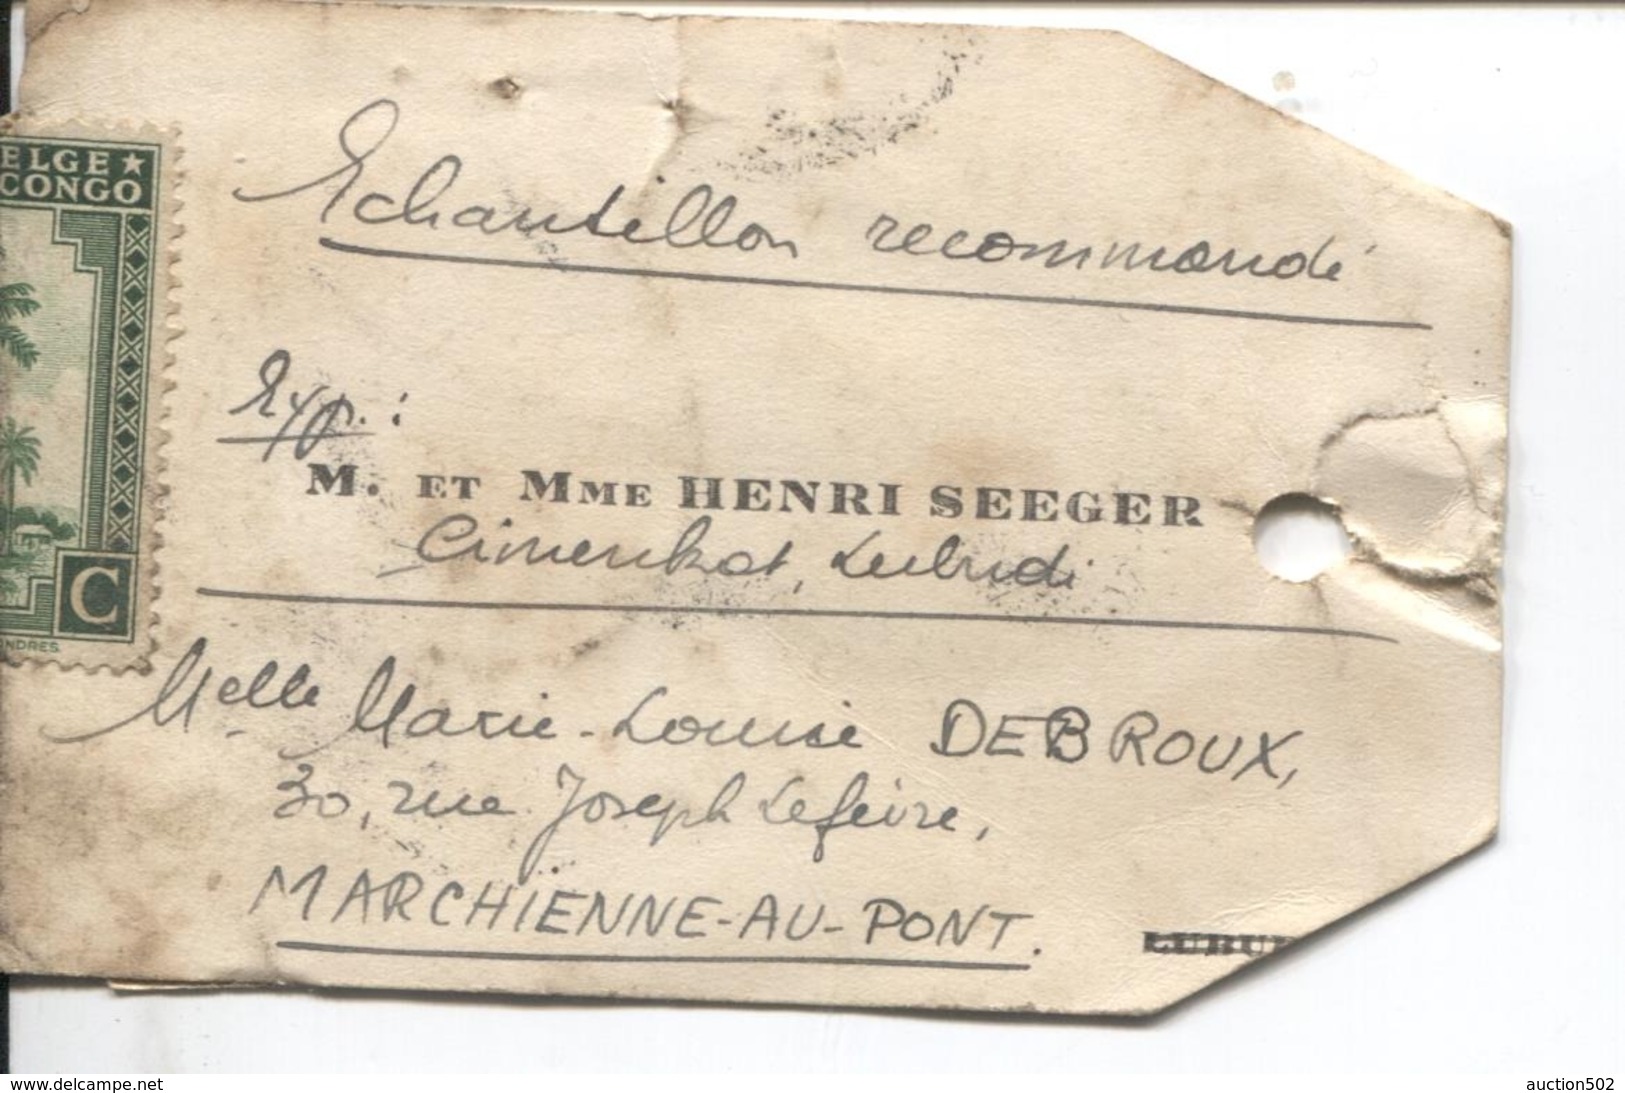 ELGE ★
CONGO
C
ONDRES.
Echantillon recommandé
Exp. :
M. ET MME HENRI SEEGER
Cimenkat, Lubudi
Melle Marie-Louise DEBROUX,
30, rue Joseph Lefèvre,
MARCHIENNE-AU-PONT.
www.delcampe.net
auction502